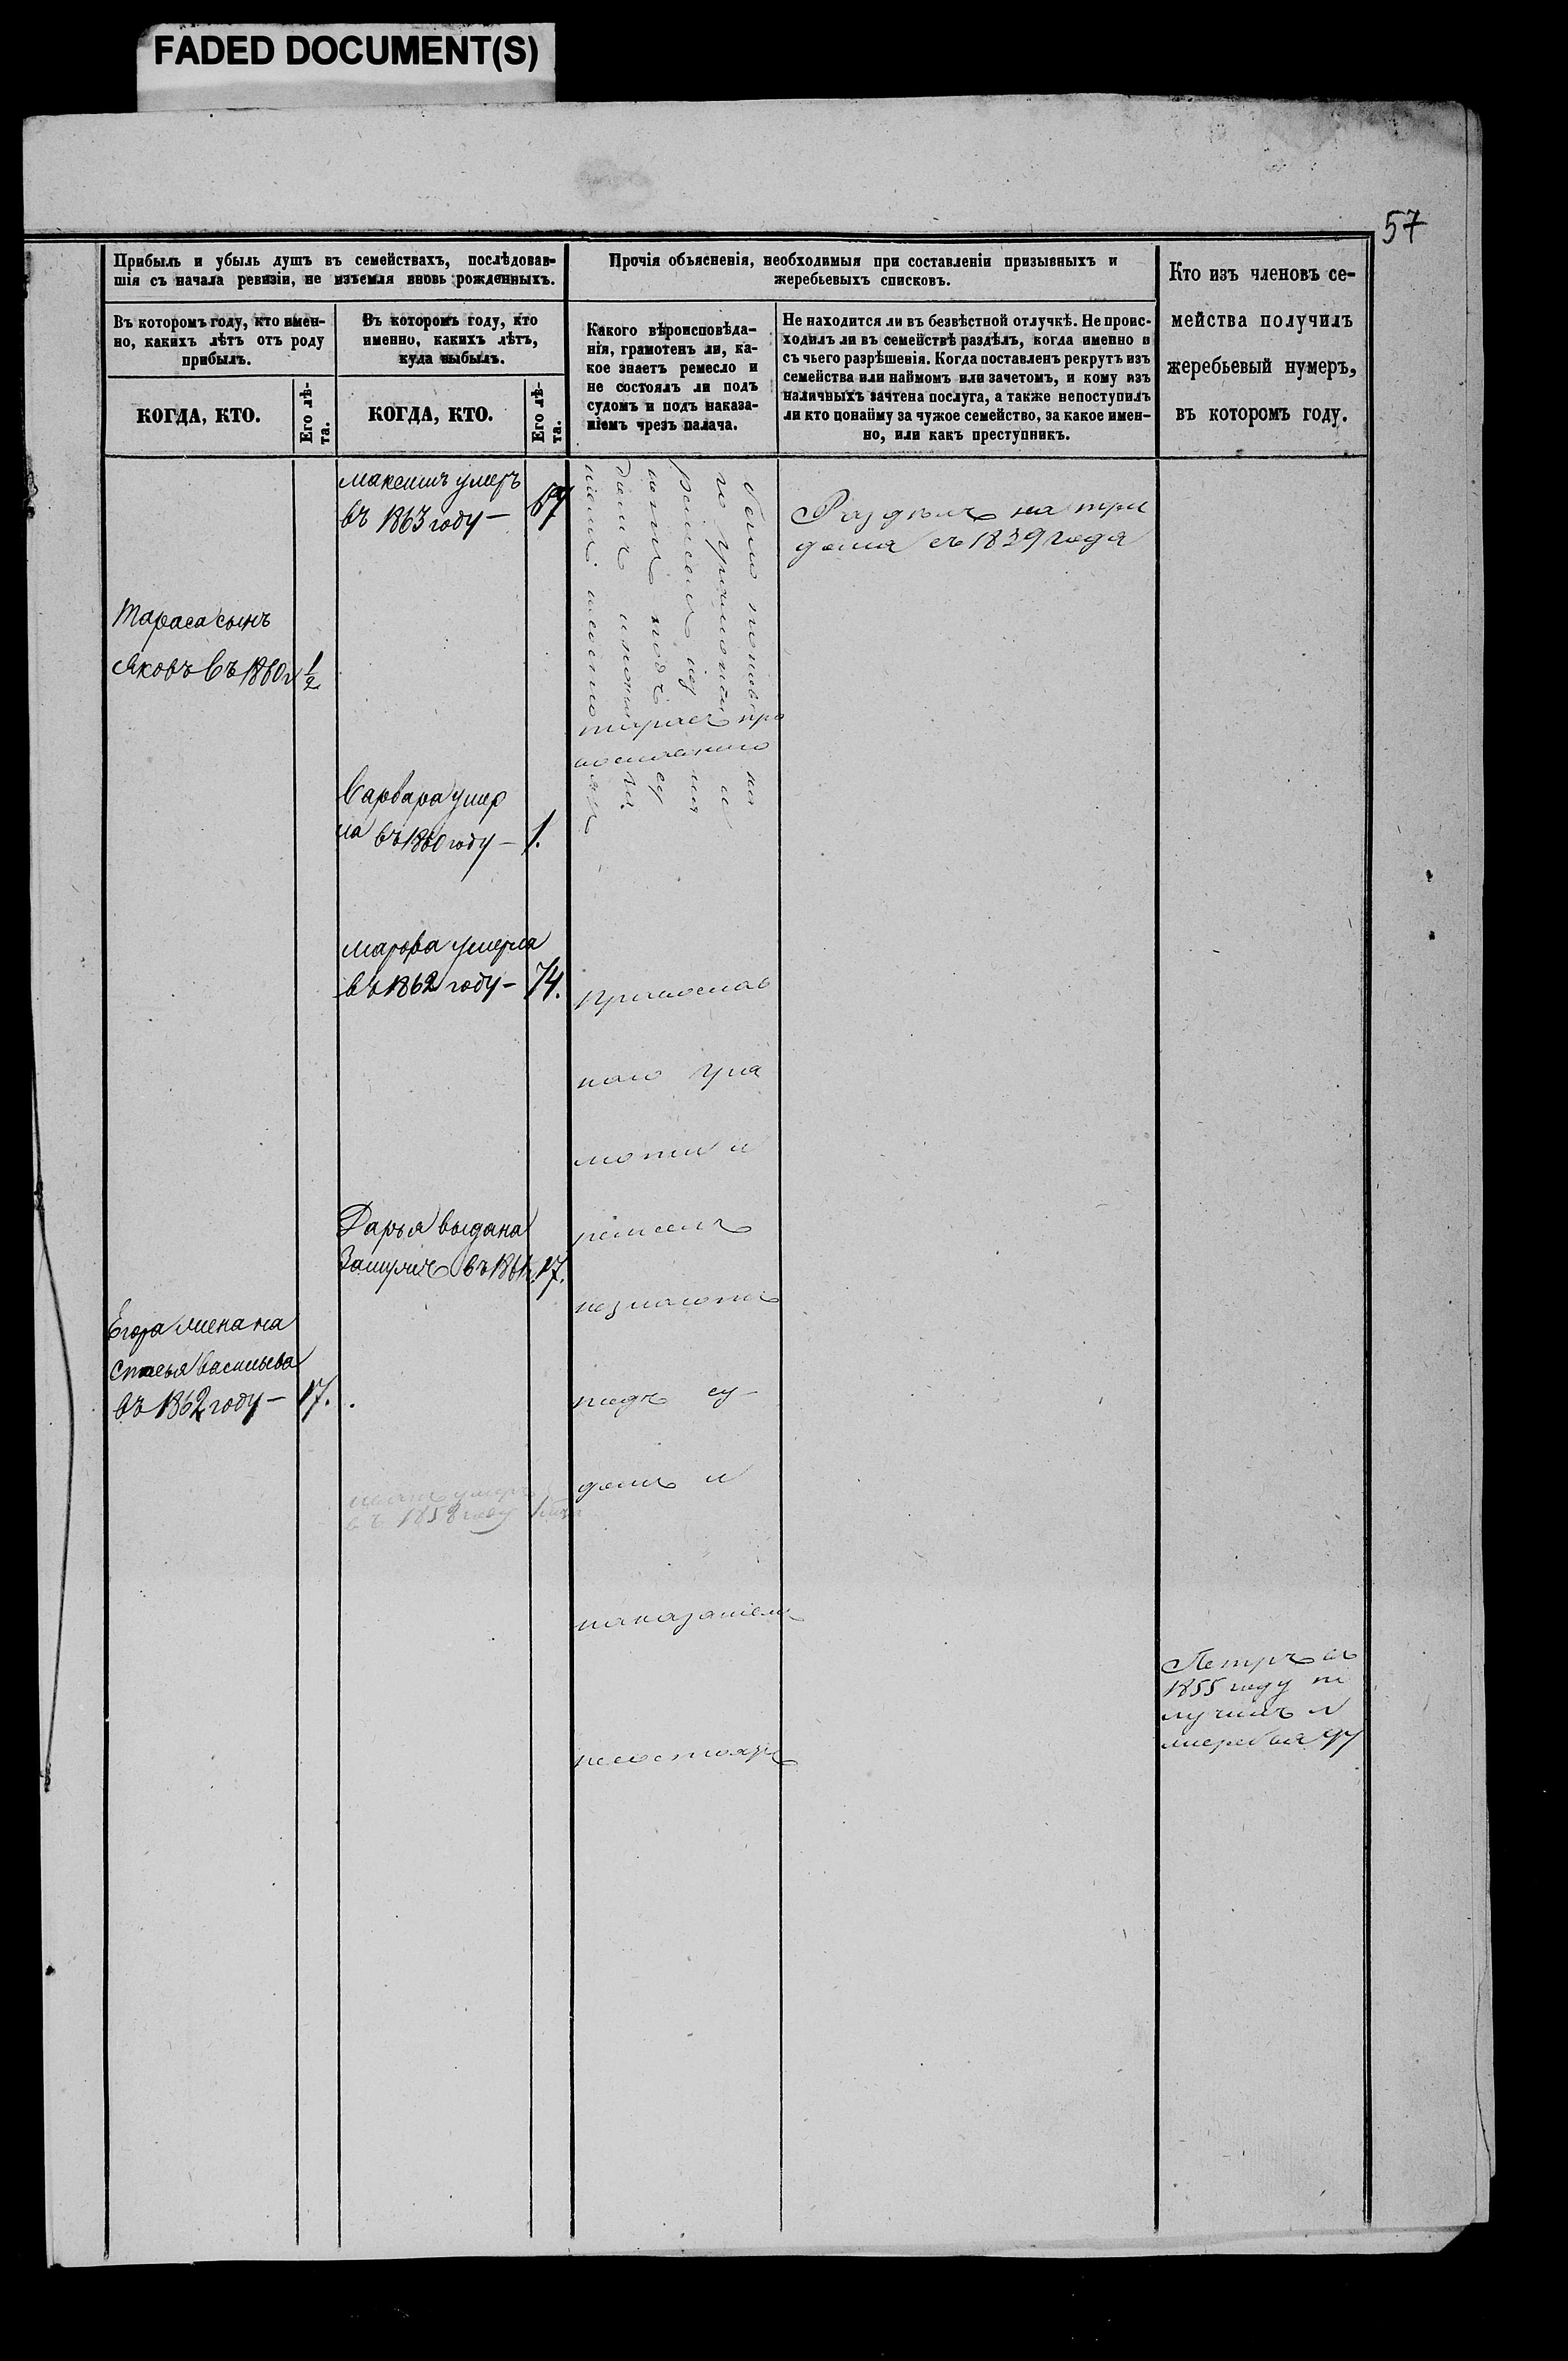 FADED DOCUMENT(S)
57
Прибыль и убыль душъ въ семействахъ, послѣдовав-
шія съ начала ревизіи, не изъемля вновь рожденныхъ.
Въ которомъ году, кто имен-
но, какихъ лѣтъ отъ роду
прибылъ.
КОГДА, КТО.
Его лѣ-
та.
Въ которомъ году, кто
именно, какихъ лѣтъ,
куда выбылъ.
КОГДА, КТО.
Его лѣ-
та.
Прочія объясненія, необходимыя при составленіи призывныхъ и
жеребьевыхъ списковъ.
Какого вѣроисповѣда-
нія, грамотенъ ли, ка-
кое знаетъ ремесло и
не состоялъ ли подъ
судомъ и подъ наказа-
ніемъ чрезъ палача.
Не находится ли въ безвѣстной отлучкѣ. Не проис-
ходилъ ли въ семействѣ раздѣлъ, когда именно и
съ чьего разрѣшенія. Когда поставленъ рекрутъ изъ
семейства или наймомъ или зачетомъ, и кому изъ
наличныхъ зачтена послуга, а также непоступилъ
ли кто понайму за чужое семейство, за какое имен-
но, или какъ преступникъ.
Кто изъ членовъ се-
мейства получилъ
жеребьевый нумеръ,
въ которомъ году.
Максимъ умеръ
въ 1863 году — 67
Раздѣлъ на три
дома съ 1839 года
Тараса сынъ
Яковъ въ 1860 г 1/2
Варвара умер
ла въ 1860 году — 1.
Марфа умерла
въ 1862 году — 74.
Православ
наго гра
моты и
ремеслъ
незнаютъ
подъ су-
домъ и
наказаніем
Дарья выдана
Замужъ въ 1861 г. 17.
Егора жена
Васильева
въ 1862 году — 17.
умеръ
въ 1858 году
Петръ въ
1855 году по
лучилъ
жеребья 97